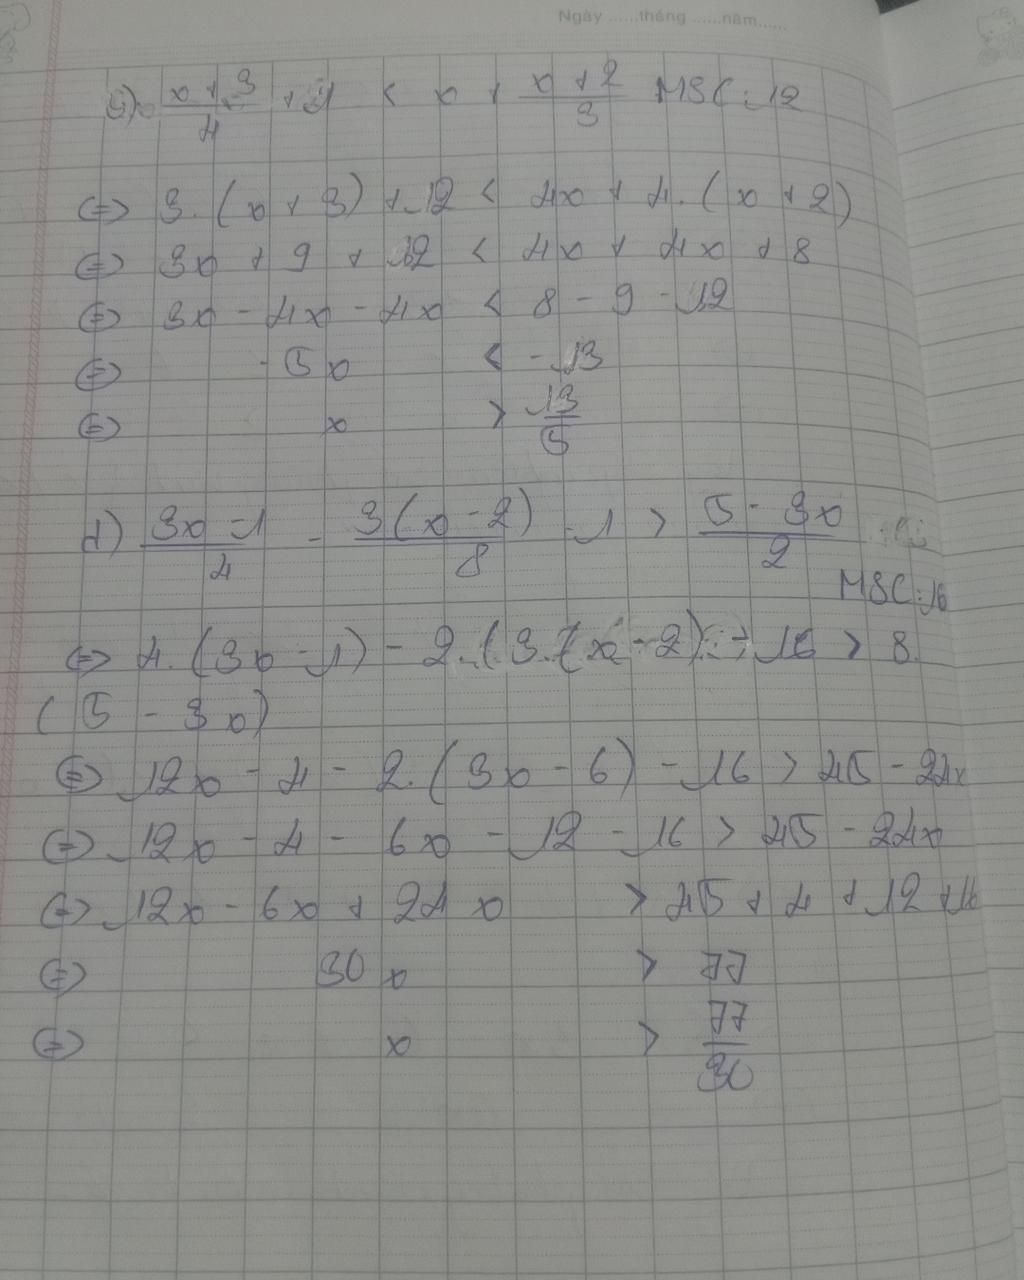 Ngày ......tháng ......năm......
c) (x + 3)/4 + 1 < x + (x + 2)/3 MSC: 12
<=> 3. (x + 3) + 12 < 4x + 4. (x + 2)
<=> 3x + 9 + 12 < 4x + 4x + 8
<=> 3x - 4x - 4x < 8 - 9 - 12
<=> - 5x < - 13
<=> x > 13/5
d) (3x - 1)/4 - 3(x - 2)/8 - 1 > (5 - 3x)/2
MSC: 16
<=> 4. (3x - 1) - 2. (3. (x - 2) - 16 > 8.
(5 - 3x)
<=> 12x - 4 - 2. (3x - 6) - 16 > 45 - 24x
<=> 12x - 4 - 6x - 12 - 16 > 45 - 24x
<=> 12x - 6x + 24x > 45 + 4 + 12 + 16
<=> 30x > 77
<=> x > 77/30